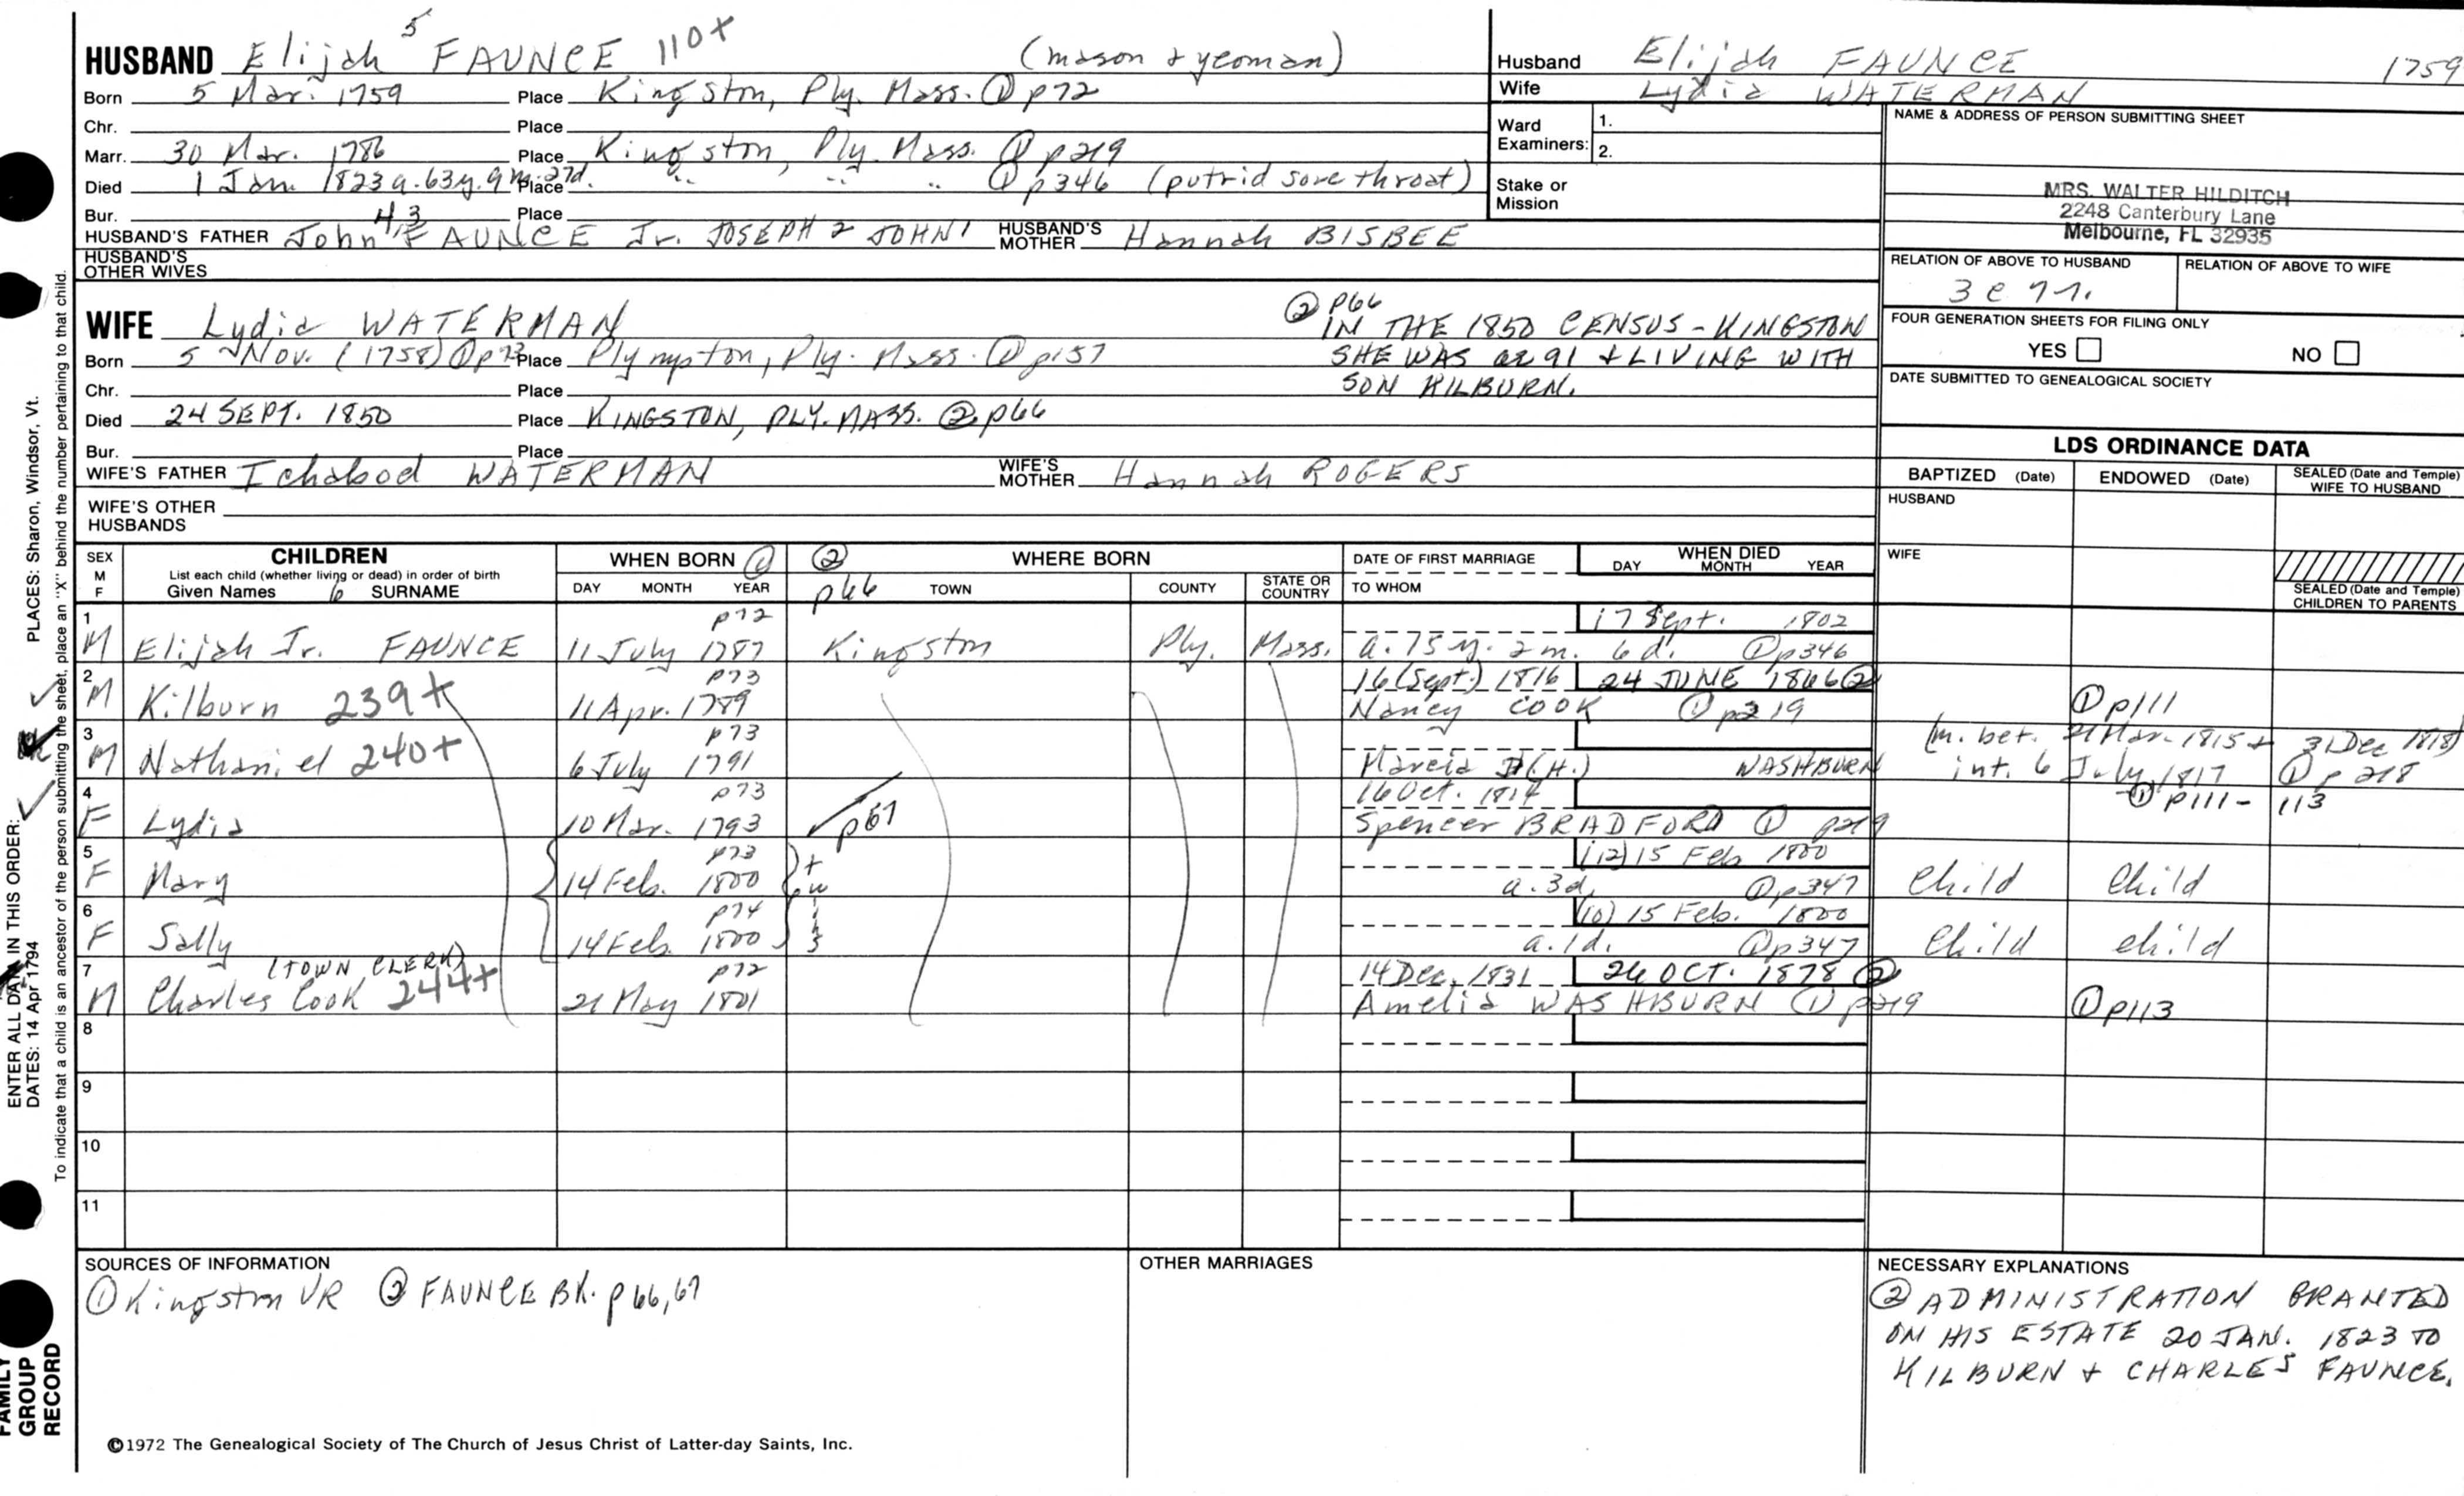 HUSBAND Elijah 5 FAUNCE 110+ (mason + yeoman)
Born 5 Mar. 1759 Place Kingston, Ply. Mass. ① p72
Chr. Place
Marr. 30 Mar. 1786 Place Kingston, Ply. Mass. ① p219
Died 1 Jan. 1823 a. 63y. 9m. 27d. Place " " " ① p346 (putrid sore throat)
Bur. Place
HUSBAND'S FATHER John 4,3 FAUNCE Jr. JOSEPH 2 JOHN 1 HUSBAND'S MOTHER Hannah BISBEE
HUSBAND'S OTHER WIVES
Husband Elijah FAUNCE 1759
Wife Lydia WATERMAN
Ward Examiners: 1.
2.
Stake or Mission
NAME & ADDRESS OF PERSON SUBMITTING SHEET
MRS. WALTER HILDITCH
2248 Canterbury Lane
Melbourne, FL 32935
RELATION OF ABOVE TO HUSBAND RELATION OF ABOVE TO WIFE
FOUR GENERATION SHEETS FOR FILING ONLY
YES NO
DATE SUBMITTED TO GENEALOGICAL SOCIETY
WIFE Lydia WATERMAN
Born 5 Nov. (1758) ① p73 Place Plympton, Ply. Mass. ① p157
Chr. Place
Died 24 SEPT. 1850 Place KINGSTON, PLY. MASS. ② p66
Bur. Place
WIFE'S FATHER Ichabod WATERMAN WIFE'S MOTHER Hannah ROGERS
WIFE'S OTHER HUSBANDS
② P66
IN THE 1850 CENSUS - KINGSTON
SHE WAS ae 91 + LIVING WITH
SON KILBURN.
LDS ORDINANCE DATA
BAPTIZED (Date) ENDOWED (Date) SEALED (Date and Temple) WIFE TO HUSBAND
HUSBAND
WIFE
SEALED (Date and Temple) CHILDREN TO PARENTS
SEX M F CHILDREN WHEN BORN ① ② WHERE BORN DATE OF FIRST MARRIAGE WHEN DIED
List each child (whether living or dead) in order of birth
Given Names 6 SURNAME DAY MONTH YEAR p66 TOWN COUNTY STATE OR COUNTRY TO WHOM DAY MONTH YEAR
1 p72 17 Sept. 1802
M Elijah Jr. FAUNCE 11 July 1787 Kingston Ply. Mass. a. 15 y. 2 m. 6 d. ① p346
2 p73 16 (Sept.) 1816 24 JUNE 1866 ②
M Kilburn 239+ 11 Apr. 1789 Nancy COOK ① p219 ① p111
3 p73 (m. bet. 21 Mar. 1815 + 31 Dec 1818)
M Nathaniel 240+ 6 July 1791 Marcia (H.) WASHBURN int. 6 July 1817 ① p 218
4 p73 16 Oct. 1814 ① p111-113
F Lydia 10 Mar. 1793 p67 Spencer BRADFORD ① p219
5 p73 (12) 15 Feb 1800
F Mary 14 Feb. 1800 twins a. 3d. ① p347 Child Child
6 p74 (10) 15 Feb. 1800
F Sally 14 Feb. 1800 a. 1d. ① p347 Child child
7 (TOWN CLERK) p72 14 Dec. 1831 26 OCT. 1878 ②
M Charles Cook 244+ 21 May 1801 Amelia WASHBURN ① p219 ① p113
8
9
10
11
SOURCES OF INFORMATION
① Kingston VR ② FAUNCE BK. p 66,67
OTHER MARRIAGES
NECESSARY EXPLANATIONS
② ADMINISTRATION GRANTED
ON HIS ESTATE 20 JAN. 1823 TO
KILBURN + CHARLES FAUNCE.
©1972 The Genealogical Society of The Church of Jesus Christ of Latter-day Saints, Inc.
ENTER ALL DATA IN THIS ORDER: PLACES: Sharon, Windsor, Vt.
DATES: 14 Apr 1794
To indicate that a child is an ancestor of the person submitting the sheet, place an "X" behind the number pertaining to that child.
FAMILY
GROUP
RECORD